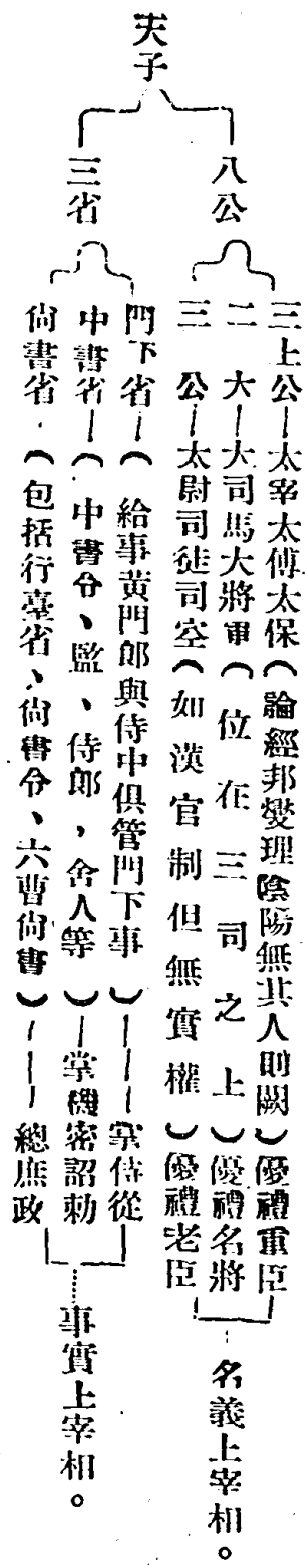 天子
八公
三上公—太宰太傅太保（論經邦燮理陰陽無其人則闕）優禮重臣
二大—大司馬大將軍（位在三司之上）優禮名將
三公—太尉司徒司空（如漢官制但無實權）優禮老臣
名義上宰相。
三省
門下省—（給事黃門郎與侍中俱管門下事）—掌侍從
中書省—（中書令、監、侍郎，舍人等）—掌機密詔勅
尙書省—（包括行臺省、尙書令、六曹尙書）—總庶政
事實上宰相。